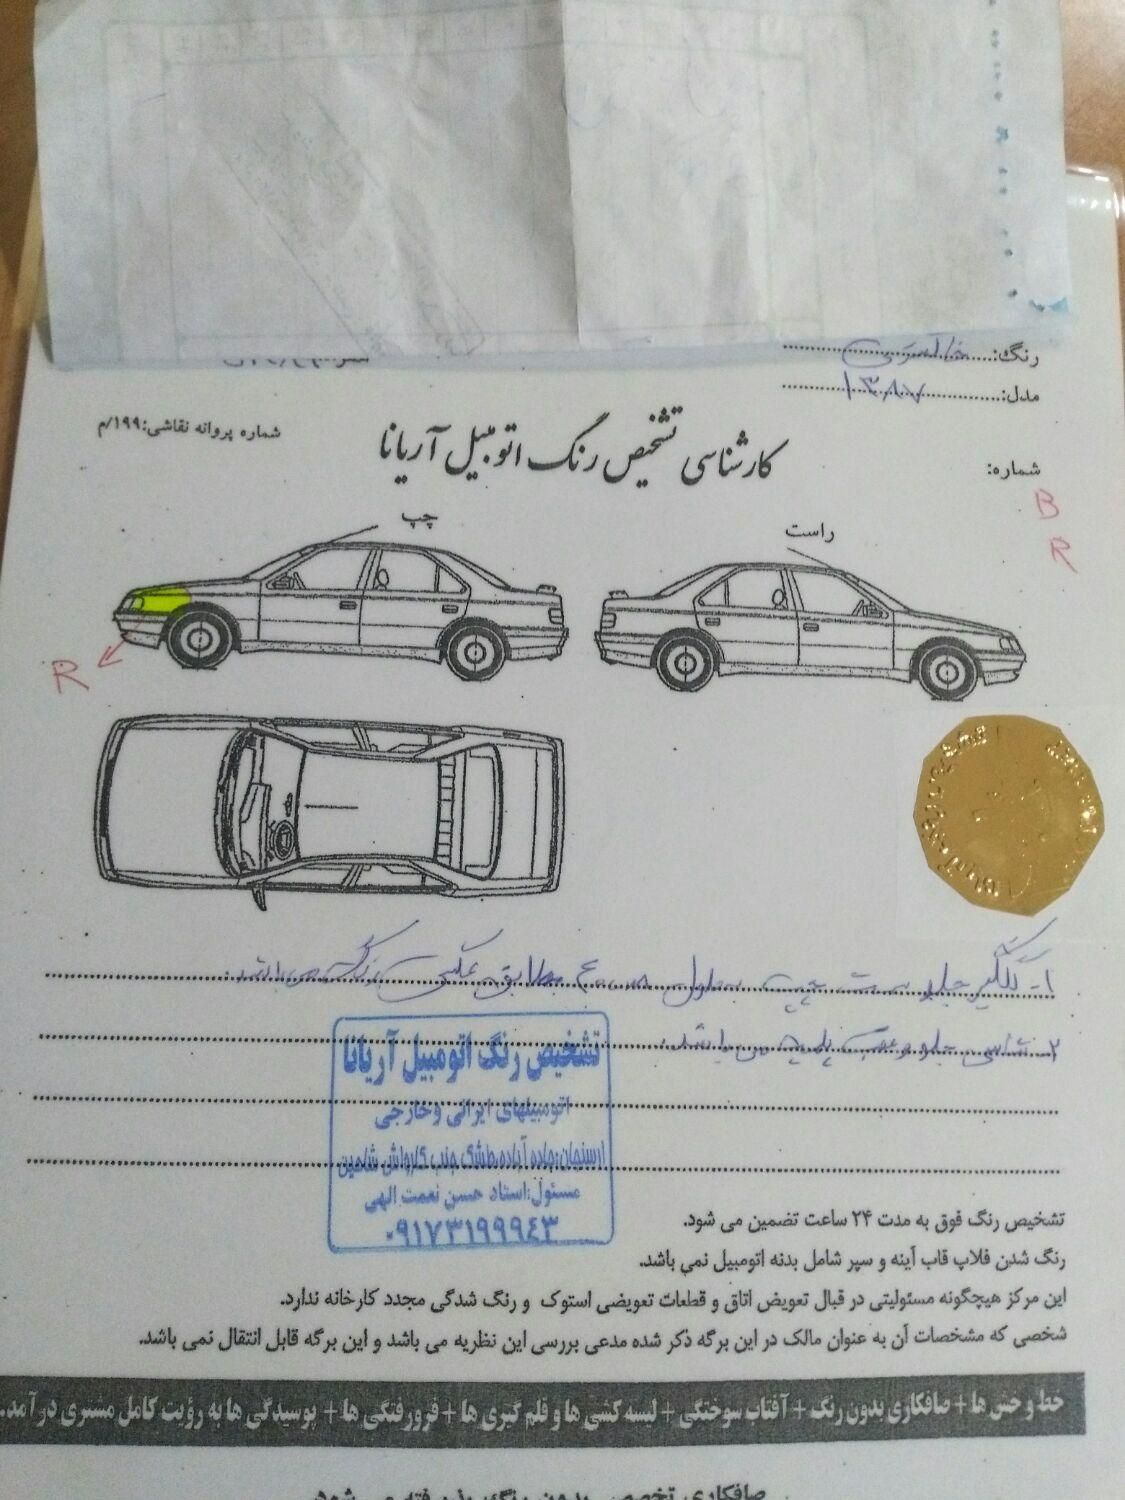 رنگ: خاکستری
مدل: ۱۳۸۷
شماره پروانه نقاشی: ۱۹۹/م
کارشناسی تشخیص رنگ اتومبیل آریانا
شماره:
B
R
چپ
راست
R
۱- گلگیر جلو سمت چپ به طول ۴۰ س مطابق عکس رنگ می باشد.
۲- شاسی جلو و عقب پلمپ می باشد.
تشخیص رنگ اتومبیل آریانا
اتومبیلهای ایرانی و خارجی
ارسنجان: جاده آباده طشک جنب کارواش شاهین
مسئول: استاد حسن نعمت الهی
۰۹۱۷۳۱۹۹۹۴۳
تشخیص رنگ فوق به مدت ۲۴ ساعت تضمین می شود.
رنگ شدن فلاپ قاب آینه و سپر شامل بدنه اتومبیل نمی باشد.
این مرکز هیچگونه مسئولیتی در قبال تعویض اتاق و قطعات تعویضی استوک و رنگ شدگی مجدد کارخانه ندارد.
شخصی که مشخصات آن به عنوان مالک در این برگه ذکر شده مدعی بررسی این نظریه می باشد و این برگه قابل انتقال نمی باشد.
خط و خش ها + صافکاری بدون رنگ + آفتاب سوختگی + لیسه کشی ها و قلم گیری ها + فرورفتگی ها + پوسیدگی ها به رؤیت کامل مشتری در آمد.
صافکاری تخصصی بدون رنگ پذیرفته می شود